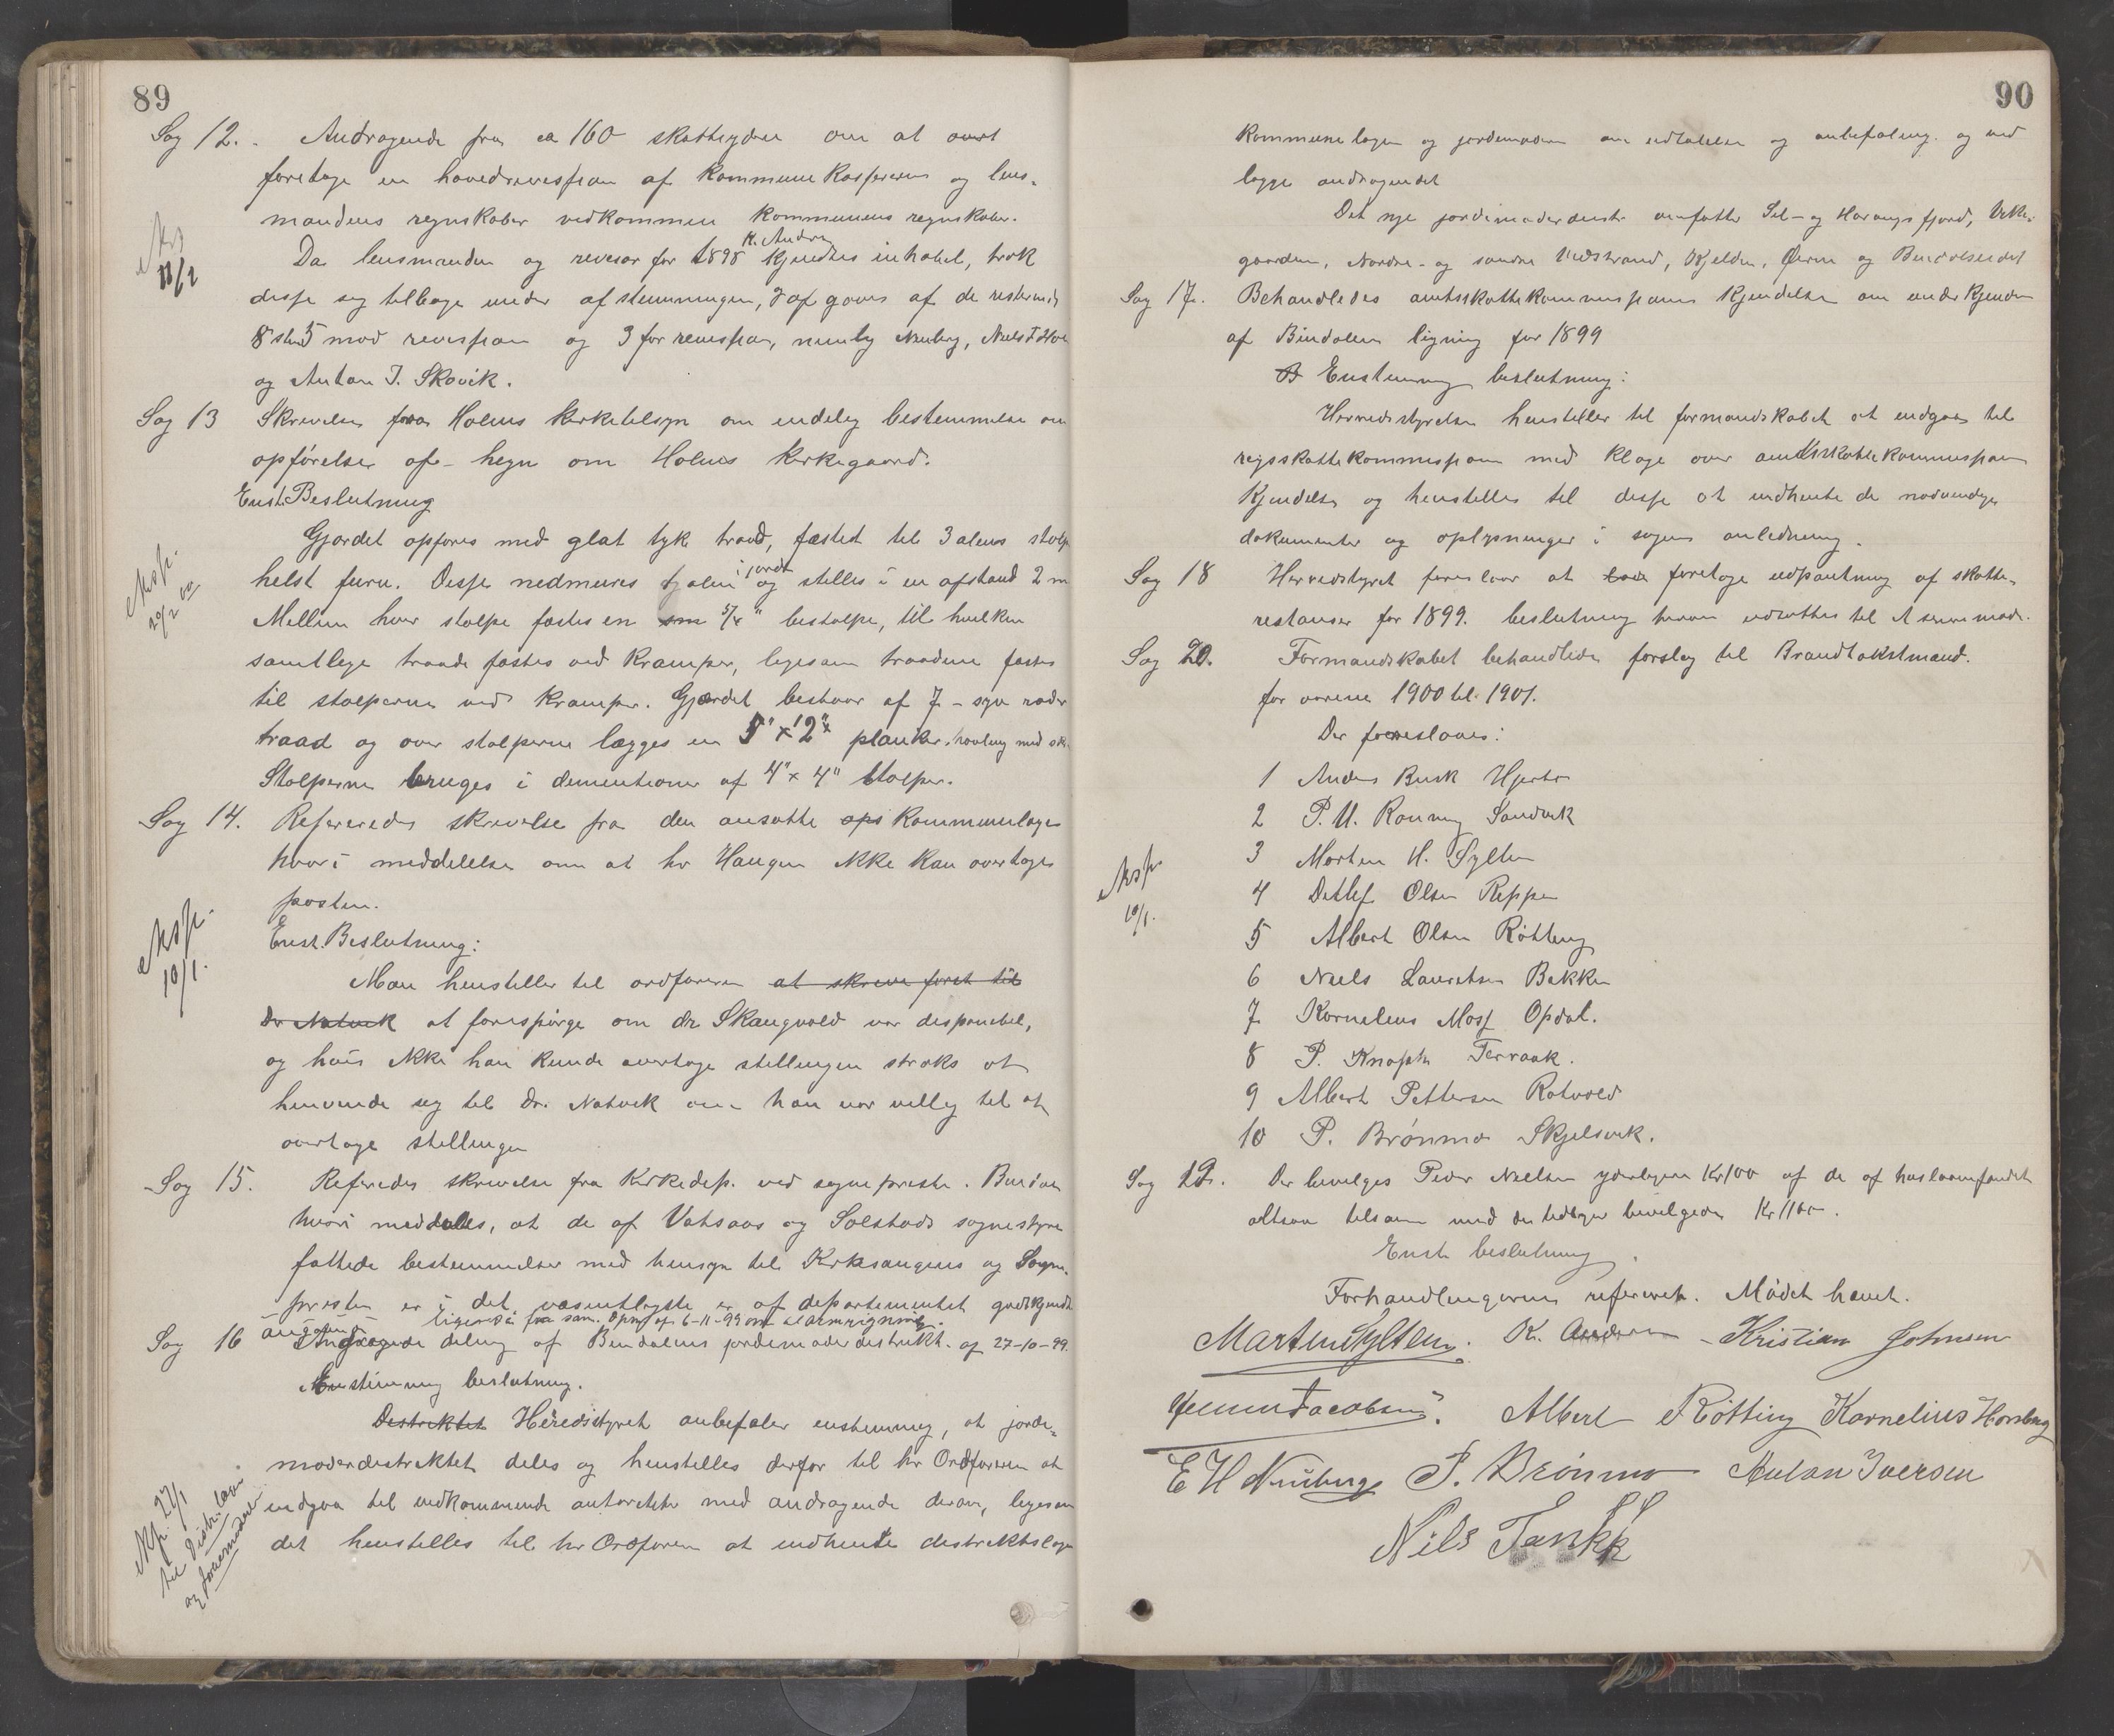 89
Sag 12. Andragende fra ca 160 skatteydere om at
foretage en hovedrevission af Kommune Kassererens og lens-
mandens regnskaber vedkommen Kommunens regnskaber.
Eks
11/2
K. Andersen
Da lensmanden og revisor for 1898 kjendtes inhabil, trak
disse seg tilbage under afstemningen, gaves af de resterende
8 st. 5 mod revission og 3 for revission, nemlig Nieberg, Niels T
og Anton I. Skavik.
Sag 13 Skrivelse fra Holms kirketilsyn om endelig bestemmelse om
opførelse af hegn om Holms Kirkegaard.
Enst. Beslutning
Gjærdet opføres med glat tyk traad, fæsted til 3 alens stolp
eksp.
20/2 00
i jorden
helst furu. Disse nedmures og stilles i en afstand 2 m
Mellem hver stolpe fæstes en 5/4" bistolpe, til hvilken
samtlige traade fæstes ved Kramper, ligesom traadene fæstes
til stolperne ved Kramper. Gjærdet bestaar af 7 - syv rader
traad og over stolperne lægges en 5" x 2" planke, høvling med
Stolperne bruges i dimentioner af 4" x 4" Stolper.
Sag 14. Refereredes skrivelse fra den ansatte Kommunelæge
hvori meddelelse om at hr Haugen ikke kan overtage
posten.
Eksp.
10/1.
Enst. Beslutning:
Man henstiller til ordføreren at skrive først til
Dr Natvik at forespørge om dr Skaugvold var disponibel,
og hvis ikke han kunde overtage stillingen straks at
henvende seg til Dr. Natvik om han var villig til at
overtage stillingen
Sag 15. Referedes skrivelse fra Kirkedep. ved sognepresten i Bindalen
hvori meddeles, at de af Vatsaas og Solstads sognestyre
fattede bestemmelser med hensyn til Kirkesangens og Sogne-
presten er i det væsentligste er af departementet godkjendt
ligesaa fra sam. Dpm af 6-11-99 om
Sag 16 angaaende deling af Bindalens jordemoderdistrikt. af 27-10-99.
Enstemmig beslutning.
Distriktet Heredsstyret anbefaler enstemmig, at jorde-
moderdistriktet deles og henstilles derfor til hr Ordføreren at
indgaa til vedkommende autoriteter med andragende derom, ligesom
det henstilles til hr Ordføreren at indhente distriktslægen
Eksp. 27/1
til Distr. læge
og jordemoder
90
Kommunelægen og jordemoderen om udtalelse og anbefaling og ved
lægge andragendet
Det nye jordemoderdistr. omfatter Sel- og Harangsfjord,
gaarden, Nordre- og søndre Vedstrand, Kjelden, Øerne og
Sag 17. Behandledes amtsskattekommissionens Kjendelse om underkjenden
af Bindalens ligning for 1899
Enstemmig beslutning:
Herredsstyrelsen henstiller til formandskabet at indgaa til
regsskattekommissionen med klage over amtsskattekommissionens
Kjendelse og henstilles til disse at indhente de nødvendige
dokumenter og oplysninger i sagens anledning.
Sag 18 Herredsstyret foreslaar at foretage udpantning af skatte-
restanser for 1899. beslutning herom udsættes til senere møde.
Sag 20. Formandskabet behandlede forslag til Brandtakstmænd.
for aarene 1900 til 1901.
Der foreslaaes:
1 Anders Busk Hjorts
2 P. M. Rønning Sandvik
3 Morten H. Sylten
4 Detlef Olsen Reppen
5 Albert Olsen Røtting
6 Niels Lauritsen Bakken
7 Kornelius Moss Opdal.
8 P. Knoph Terraak.
9 Albert Pettersen Rotvold
10 P. Brønmo Skjelsvik.
Eksp.
10/1.
Sag 19. Der bevilges Peder Nielsen yderligere Kr 100 af de af huslaanefondet
altsaa tilsam med den tidligere bevilgede Kr 1100.
Enst. beslutning.
Forhandlingerne refereret. Mødet hævet.
Martin Sylten. K. Andersen Kristian Johnsen
Jacobsen. Albert Røtting Kornelius Horsberg
E H Nieberg P. Brønmo Anton Iversen
Nils Tankk